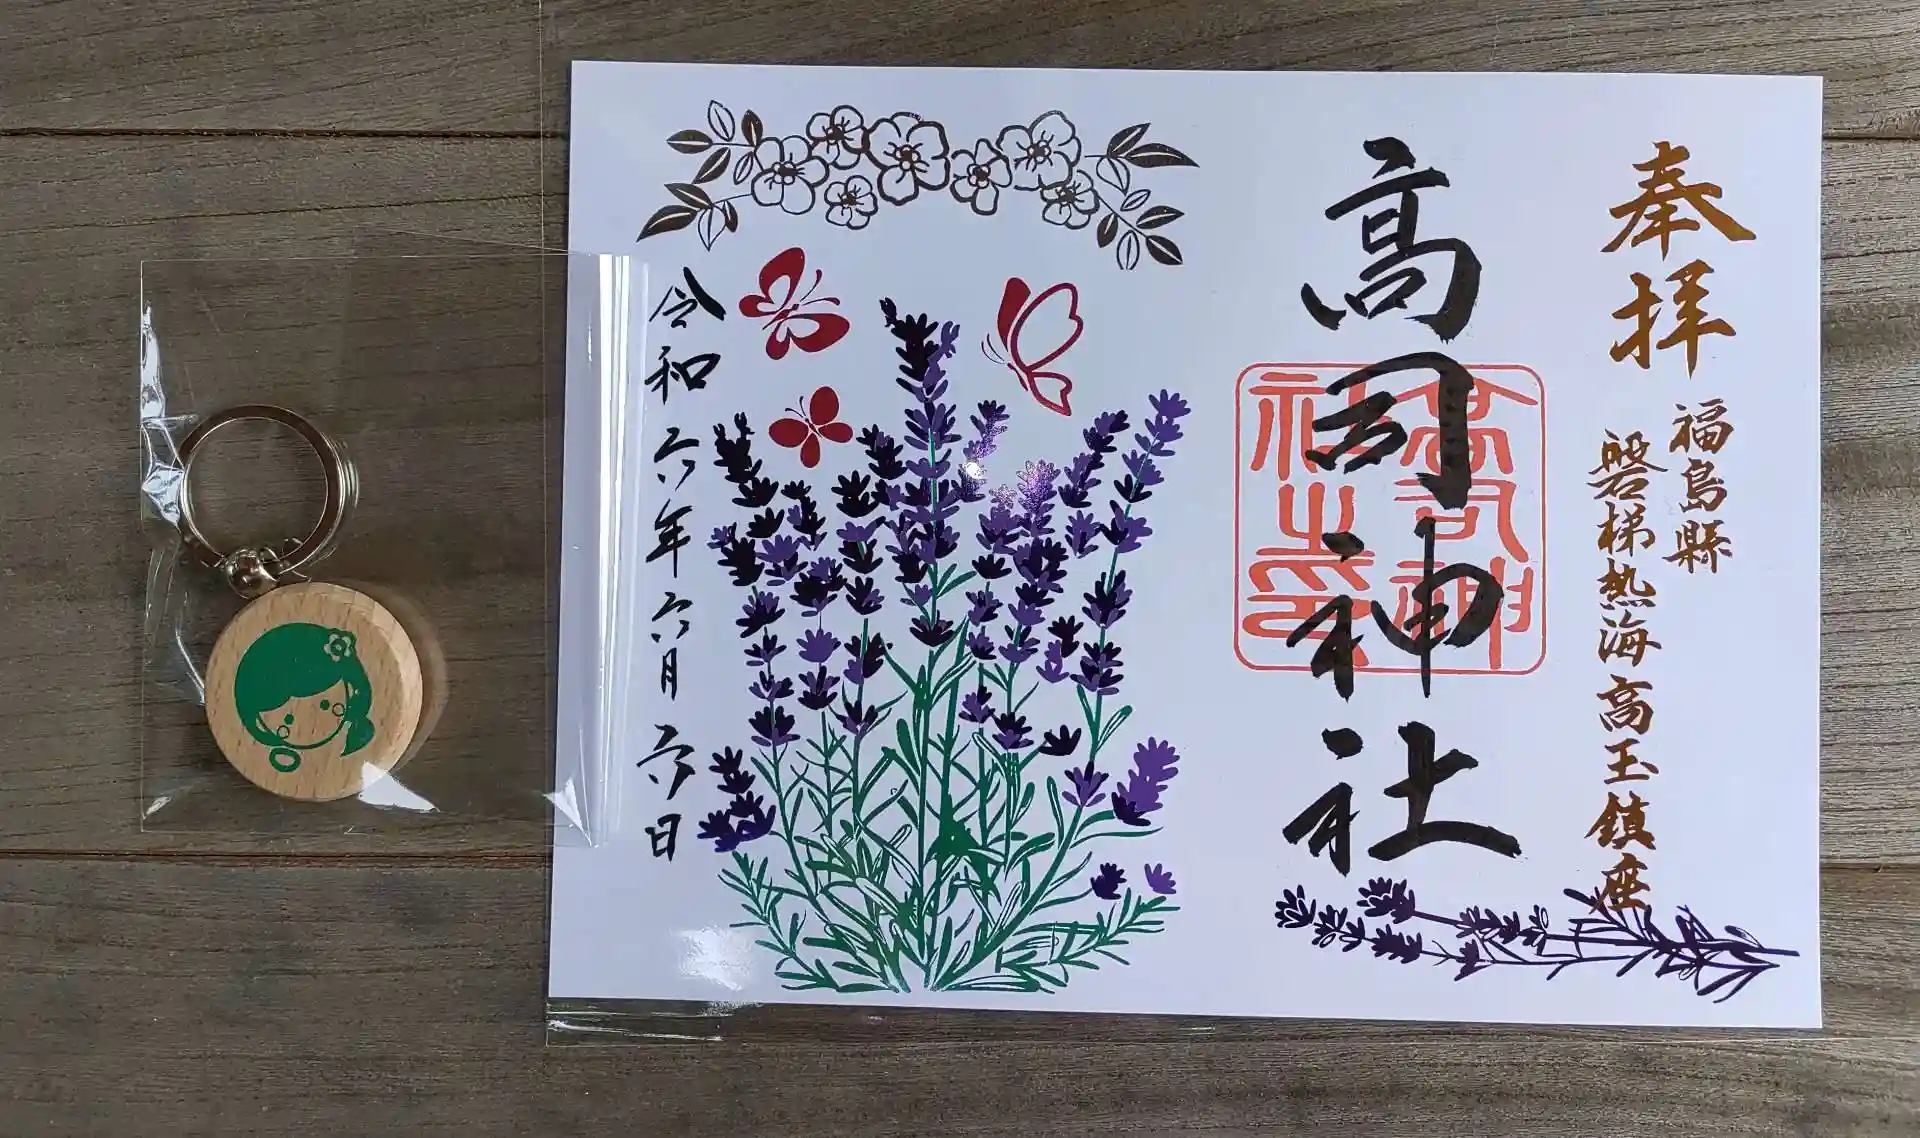 奉拝
福島縣
磐梯熱海高玉鎮座
高司神社
高司神
社之印
令和六年六月六日